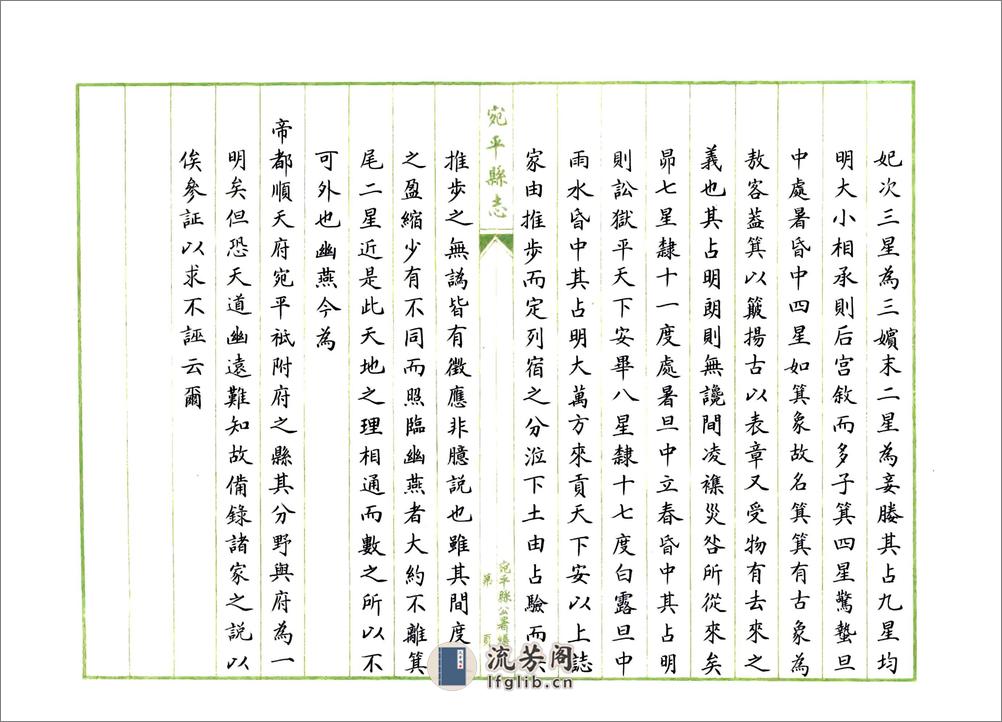 妃次三星為三嬪末二星為妾媵其占九星均
明大小相承則后宫敘而多子箕四星驚蟄旦
中處暑昏中四星如箕象故名箕箕有古象為
敖客葢箕以簸揚古以表章又受物有去來之
義也其占明朗則無讒間凌襍災咎所從來矣
昴七星隸十一度處暑旦中立春昏中其占明
則訟獄平天下安畢八星隸十七度白露旦中
雨水昏中其占明大萬方來貢天下安以上誌
家由推步而定列宿之分涖下土由占驗而
宛平縣志
宛平縣公署
第
推步之無譌皆有徵應非臆説也雖其間度
之盈縮少有不同而照臨幽燕者大約不離箕
尾二星近是此天地之理相通而數之所以不
可外也幽燕今為
帝都順天府宛平祗附府之縣其分野與府為一
明矣但恐天道幽遠難知故備錄諸家之説以
俟參証以求不誣云爾
流芳阁
lfglib.cn